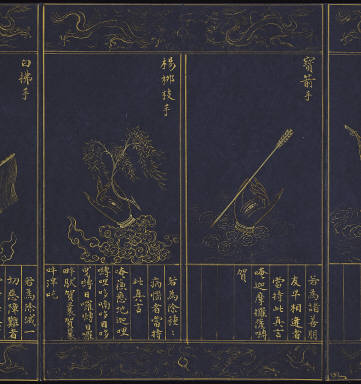 寶箭手
若為諸善朋
友早相逢者
當持此真言
唵迦摩攞
賀
楊柳枝手
若為除種〻
病惱者當持
此真言
唵蘇悉地迦哩
嚩哩哆喃哆目哆
曳嚩日囉嚩日囉
畔馱賀曩賀曩
吽泮吒
白拂手
若為除滅一
切惡障難者